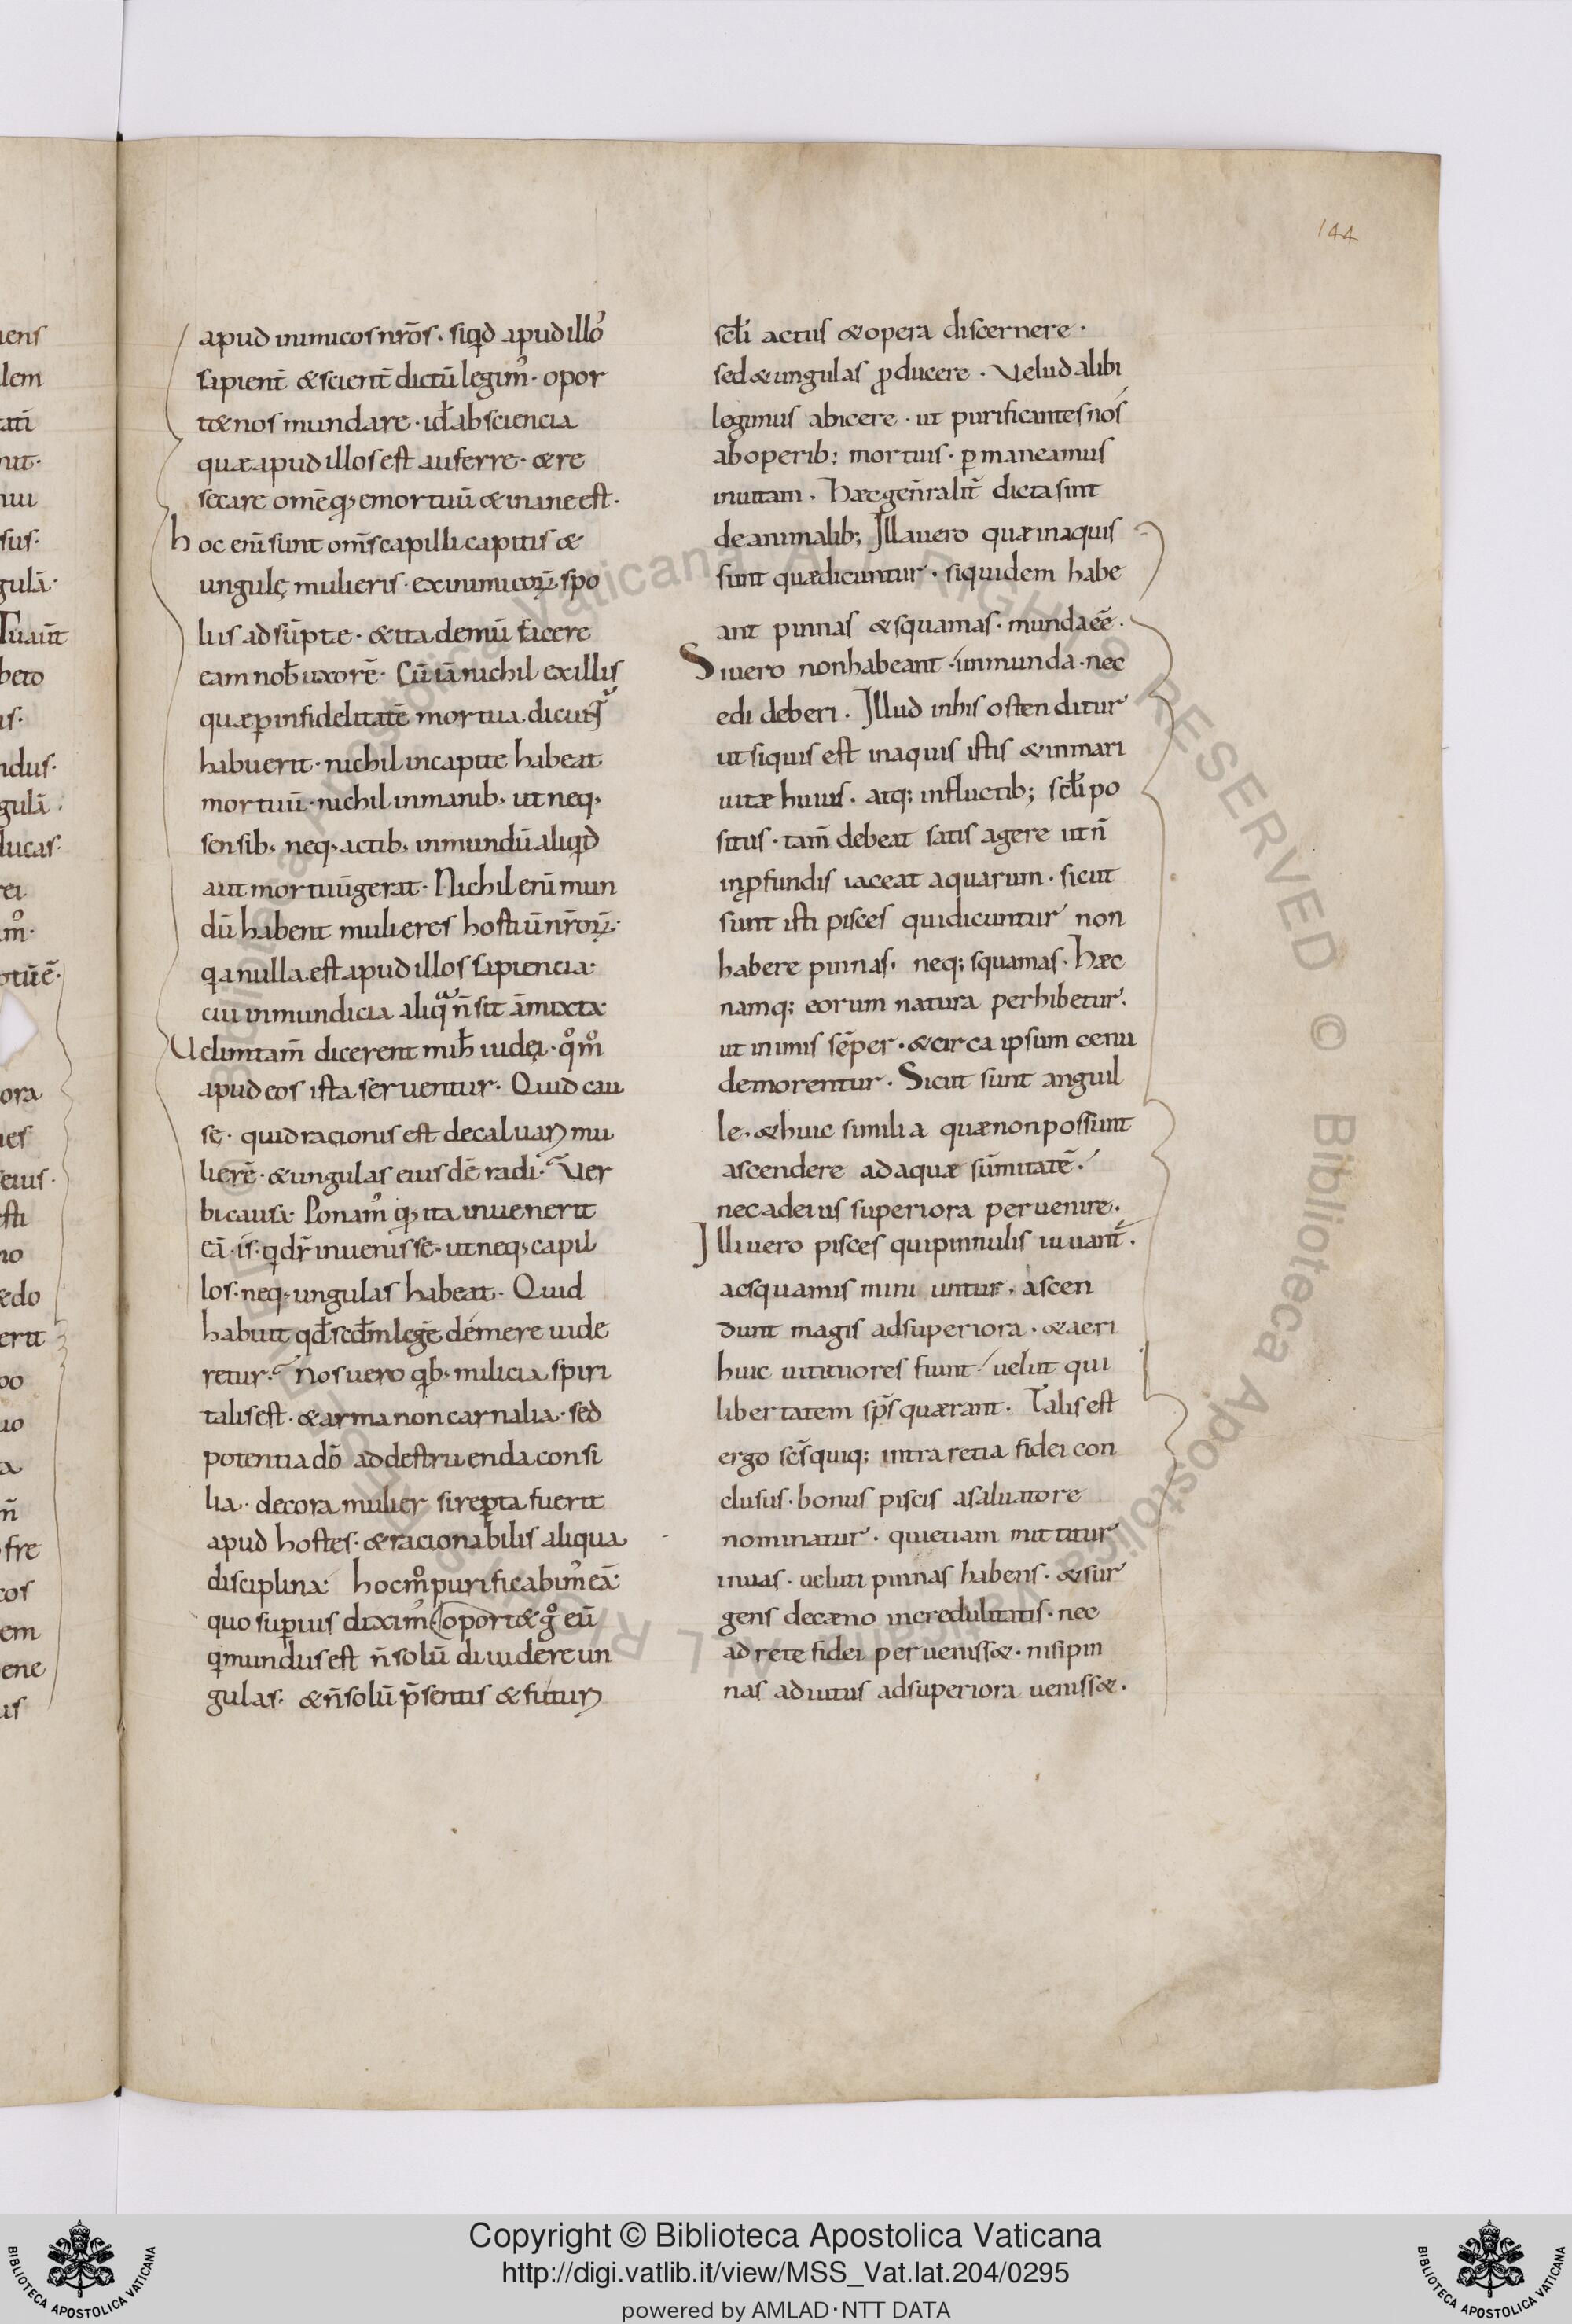 144
apud inimicos nr̄os · siqđ apud illoꝰ
sapient̄ & scient̄ dictū legimꝰ · opor
t& nos mundare · id ab sciencia
quæ apud illos est auferre · & re
secare omē qđ emortuū & inane est ·
hoc enī sunt om̄s capilli capitis &
ungulę mulieris · ex inimicoꝝ spo
liis adsūpte · & ita demū facere
eam nob̄ uxorē · Cū iā nichil ex illis
quæ ꝑ infidelitatē mortua dicunt᷑
habuerit · nichil incapite habeat
mortuū · nichil inmanib; ut neq;
sensib; neq; actib; inmundū aliqđ
aut mortuū gerat · Nichil enī mun
dū habent mulieres hostiū nr̄oꝝ ·
q̇a nulla est apud illos sapiencia ·
cui inmundicia aliqᵃ n̄ sit āmixta ·
Uelim tam̄ dicerent mih̄ iudęi · q°m°
apud eos ista seruentur · Quid cau
sę · quid racionis est decaluari mu
lierē · & ungulas eius dē radi · Ver
bi causa · Ponamꝰ qđ ita inuenerit
eā · is · q̇ dr̄ inuenisse · ut neq; capil
los · neq; ungulas habeat · Quid
habuit qđ sc̄dm legē demere uide
retur · Nos uero q̇b; milicia spiri
talis est · & arma non carnalia · sed
potentia dō ad destruenda consi
lia · decora mulier si reꝑta fuerit
apud hostes · & racionabilis aliqua
disciplina · hocm° purificabimꝰ eā ·
quo suꝑius diximꝰ oport& g° eū
q̇ mundus est n̄ solū diuidere un
gulas · & n̄ solū p̄sentis & futuri
scłi actus & opera discernere ·
sed & ungulas ꝓducere · Uelud alibi
legimus abicere · ut purificantes nos
ab operib; mortuis · ꝑmaneamus
inuitam · Hæc gen̄ralit̄ dicta sint
de animalib; Illa uero quæ in aquis
sunt quæ dicuntur · siquidem habe
ant pinnas & squamas · munda eē ·
Si uero non habeant · inmunda · nec
edi deberi · Illud inhis ostenditur
ut siquis est inaquis istis & inmari
uitæ huius · atq; influctib; scłi po
situs · tam̄ debeat satis agere ut n̄
in ꝓfundis iaceat aquarum · sicut
sunt isti pisces qui dicuntur non
habere pinnas · neq; squamas · Hæc
namq; eorum natura perhibetur ·
ut in imis sēper · & circa ipsum cenu
demorentur · Sicut sunt anguil
le · & huic similia quæ non possunt
ascendere ad aquæ sūmitatē ·
nec ad eius superiora peruenire ·
Illi uero pisces qui pinnulis iuuant᷑ ·
ac squamis muniuntur · ascen
dunt magis adsuperiora · & aeri
huic uitiniores fiunt · uelut qui
libertatem sp̄s quærant · Talis est
ergo sc̄s quiq; intra retia fidei con
clusus · bonus piscis a saluatore
nominatur · qui etiam mittitur
inuas · ueluti pinnas habens · & sur
gens de cæno incredulitatis · nec
ad rete fidei peruenisset · nisi pin
nas aduitus adsuperiora uenisset ·
Copyright © Biblioteca Apostolica Vaticana
http://digi.vatlib.it/view/MSS_Vat.lat.204/0295
powered by AMLAD · NTT DATA
BIBLIOTECA APOSTOLICA VATICANA
BIBLIOTECA APOSTOLICA VATICANA